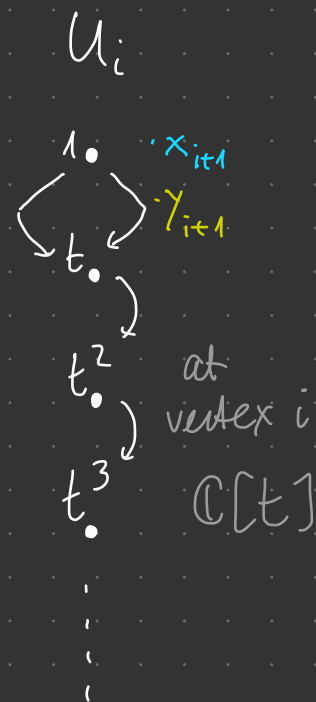 U_i
1 · x_{i+1}
· y_{i+1}
t
t^2 at
vertex i
t^3 ℂ[t]